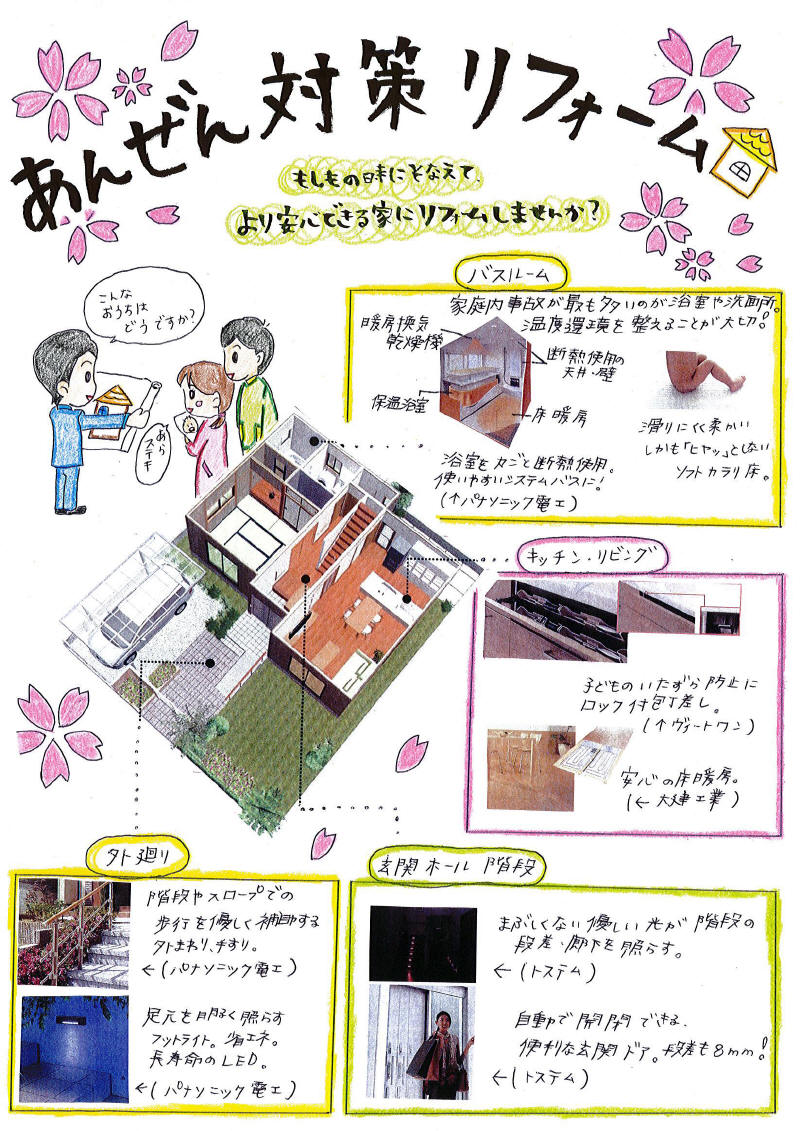 あんぜん対策リフォーム
もしもの時にそなえて、
より安心できる家にリフォームしませんか？
こんな
おうちは
どうですか？
あら
ステキ
バスルーム
家庭内事故が最も多いのが浴室や洗面所。
温度環境を整えることが大切！
暖房換気
乾燥機
断熱使用の
天井・壁
保温浴室
床暖房
浴室を丸ごと断熱使用。
使いやすいシステムバスに！
(↑パナソニック電工)
滑りにくく柔かい
しかも「ヒヤッ」としない
ソフトカラリ床。
キッチン・リビング
子どものいたずら防止に
ロック付包丁差し。
(↑ヴィートワン)
安心の床暖房。
(←大建工業)
外廻り
階段やスロープでの
歩行を優しく補助する
外まわり手すり。
←(パナソニック電工)
足元を明るく照らす
フットライト。省エネ。
長寿命のLED。
←(パナソニック電工)
玄関ホール階段
まぶしくない優しい光が階段の
段差・廊下を照らす。
←(トステム)
自動で開閉できる、
便利な玄関ドア。段差も8mm！
←(トステム)